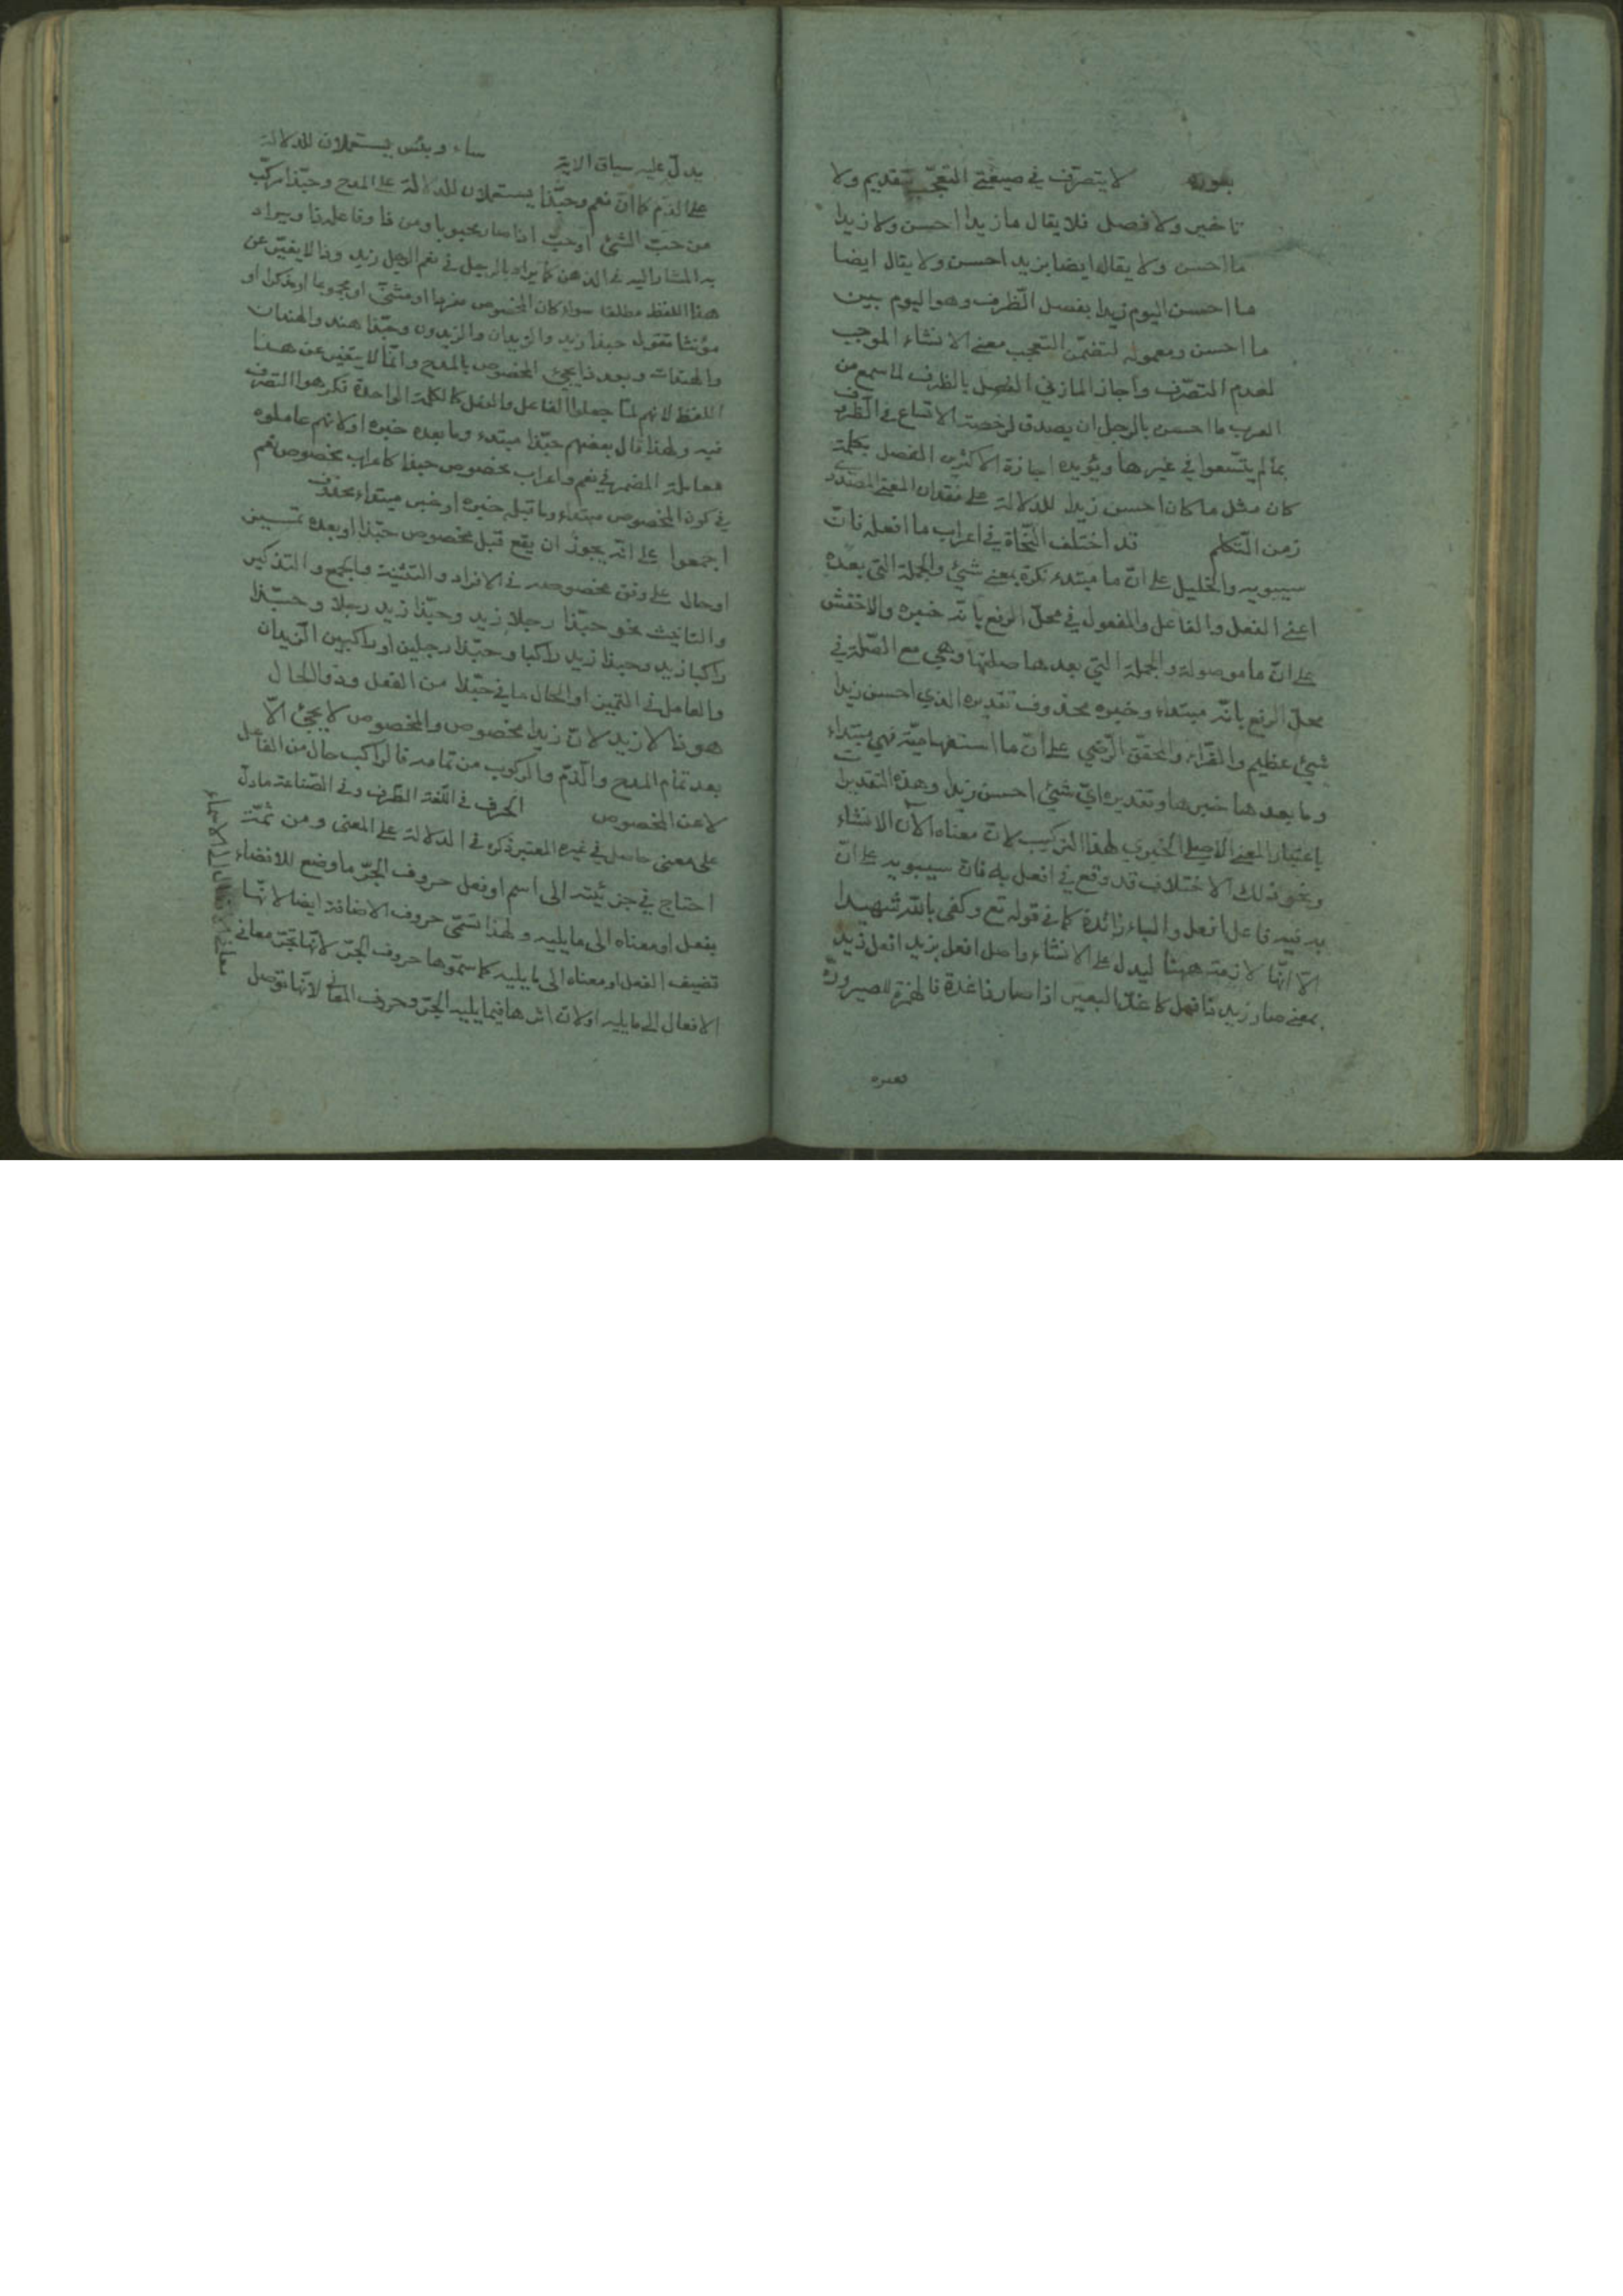 بعوره لا يتصرّف في صيغتي التعجّب بتقديم ولا
تاخير ولا فصل فلا يقال ما زيدا احسن ولا زيدا
ما احسن ولا يقال ايضا بزيد احسن ولا يقال ايضا
ما احسن اليوم زيدا بفصل الظّرف وهو اليوم بين
ما احسن ومعموله لتضمّن التعجب معنى الانشاء الموجب
لعدم التصرّف واجاز المازني الفصل بالظرف لما سمع من
العرب ما احسن بالرجل ان يصدق لرخصة الاتساع في الظرف
بما لم يتّسعوا في غيرها ويؤيده اجازة الاكثرين الفصل بكلمة
كان مثل ما كان احسن زيدا للدلالة على فقدان المعنى المصدري
زمن التّكلم قد اختلف النّحاة في اعراب ما افعله فانّ
سيبويه والخليل على انّ ما مبتدء نكرة بمعنى شيئ والجملة التي بعده
اعني الفعل والفاعل والمفعول في محلّ الرفع بانّه خبره والاخفش
على انّ ما موصولة والجملة التي بعدها صلتها وهي مع الصّلة في
محلّ الرفع بانّه مبتداء وخبره محذوف تقديره الذي احسن زيدا
شيئ عظيم والفرّاء والمحقّق الرّضي على انّ ما استفهاميّة فهي مبتداء
وما بعدها خبرها وتقديره ايّ شيئ احسن زيدا وهذه التقديرات
باعتبار المعنى الاصلي الخبري لهذا التركيب لانّ معناه الآن الانشاء
ونحو ذلك الاختلاف قد وقع في افعل به فانّ سيبويه على انّ
به فيه فاعل افعل والباء زائدة كما في قوله تع وكفى باللّه شهيدا
الاّ انّها لازمة ههنا ليدل على الانشاء واصل افعل بزيد افعل زيد
بمعنى صار زيد ذا فعل كاغدّ البعير اذا صار ذا غدة فالهمزة للصيرورة
يدلّ عليه سياق الاية ساء وبئس يستعملان للدلالة
على الذّم كما انّ نعم وحبّذا يستعملان للدلالة على المدح وحبّذا مركّب
من حبّ الشئ او حبّ اذا صار محبوبا ومن ذا وفاعله ذا ويراد
به المشار اليه في الذهن كما يراد بالرجل في نعم الرجل زيد وذا لا يغيّر عن
هذا اللفظ مطلقا سواء كان المخصوص مفردا او مثنّى او مجموعا او مذكرا او
مؤنثا تقول حبذا زيد والزيدان والزيدون وحبّذا هند والهندان
والهندات وبعد ذا يجئ المخصوص بالمدح وانّما لا يتغير عن هذا
اللفظ لانهم لمّا جعلوا الفاعل والفعل كالكلمة الواحدة فكرهوا التصرّف
فيه ولهذا قال بعضهم حبّذا مبتدء وما بعده خبره او لانهم عاملوه
معاملة المضمر في نعم واعراب مخصوص حبذا كاعراب مخصوص نعم
في كون المخصوص مبتداء وما قبله خبره او خبر مبتداء محذوف
اجمعوا على انّه يجوز ان يقع قبل مخصوص حبّذا او بعده تمييز
او حال على وفق مخصوصه في الافراد والتثنية والجمع والتذكير
والتانيث نحو حبّذا رجلا زيد وحبّذا زيد رجلا وحبّذا
راكبا زيد وحبذا زيد راكبا وحبّذا رجلين او راكبين الزيدان
والعامل في التمييز او الحال ما في حبّذا من الفعل وذو الحال
هو ذا لا زيد لانّ زيدا مخصوص والمخصوص لا يجئ الاّ
بعد تمام المدح والذّم والركوب من تمامه فالراكب حال من الفاعل
لا عن المخصوص الحرف في اللّغة الطّرف وفي الصّناعة ما دلّ
على معنى حاصل في غيره المعتبر ذكره في الدلالة على المعنى ومن ثمّة
احتاج في جزئيّته الى اسم او فعل حروف الجرّ ما وضع للافضاء
بفعل او معناه الى ما يليه ولهذا تسمّى حروف الاضافة ايضا لانّها
تضيف الفعل او معناه الى ما يليه كما سمّوها حروف الجرّ لانّها تجرّ معاني
الافعال الى ما يليه او لانّ اثرها فيما يليه الجرّ وحروف المعاني لانّها توصل